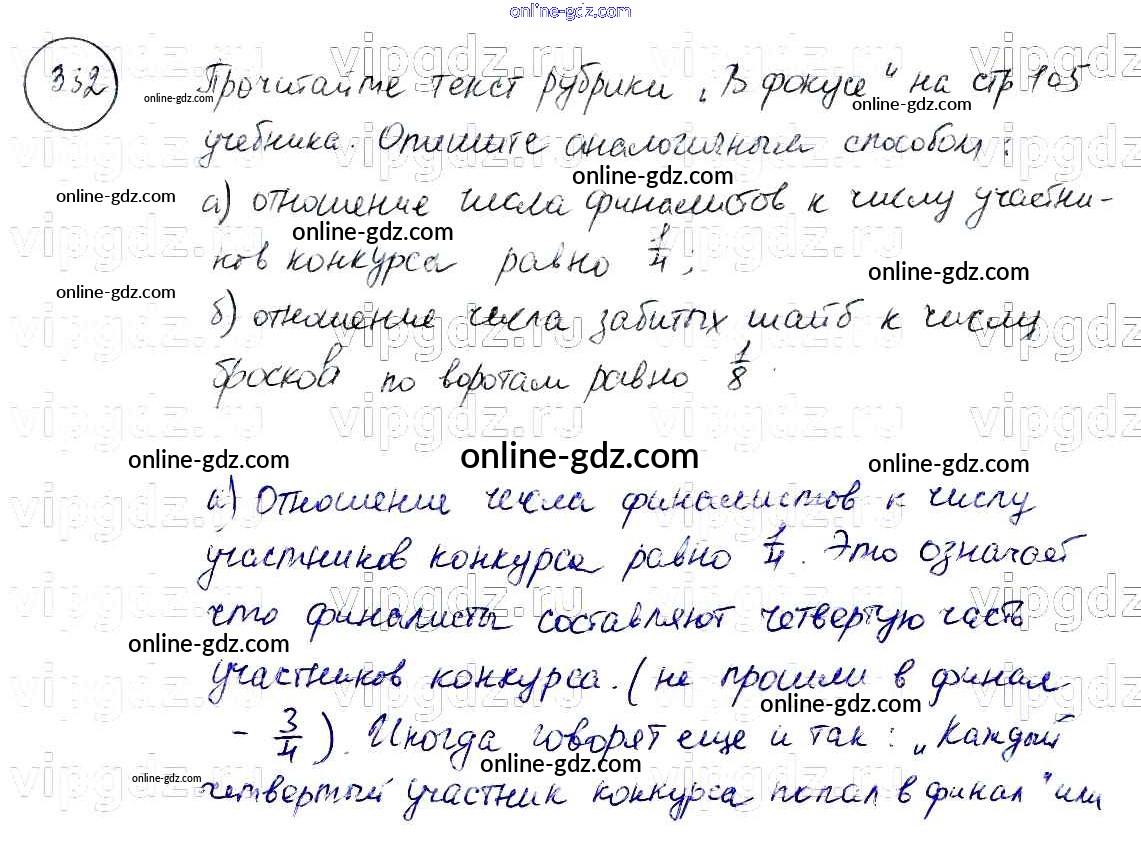 online-gdz.com
332 Прочитайте текст рубрики „В фокусе" на стр 105
учебника. Опишите аналогичным способом:
а) отношение числа финалистов к числу участни-
ков конкурса равно 1/4;
б) отношение числа забитых шайб к числу
бросков по воротам равно 1/8.
а) Отношение числа финалистов к числу
участников конкурса равно 1/4. Это означает
что финалисты составляют четвертую часть
участников конкурса. (не прошли в финал
- 3/4). Иногда говорят еще и так: „Каждый
четвертый участник конкурса попал в финал" или